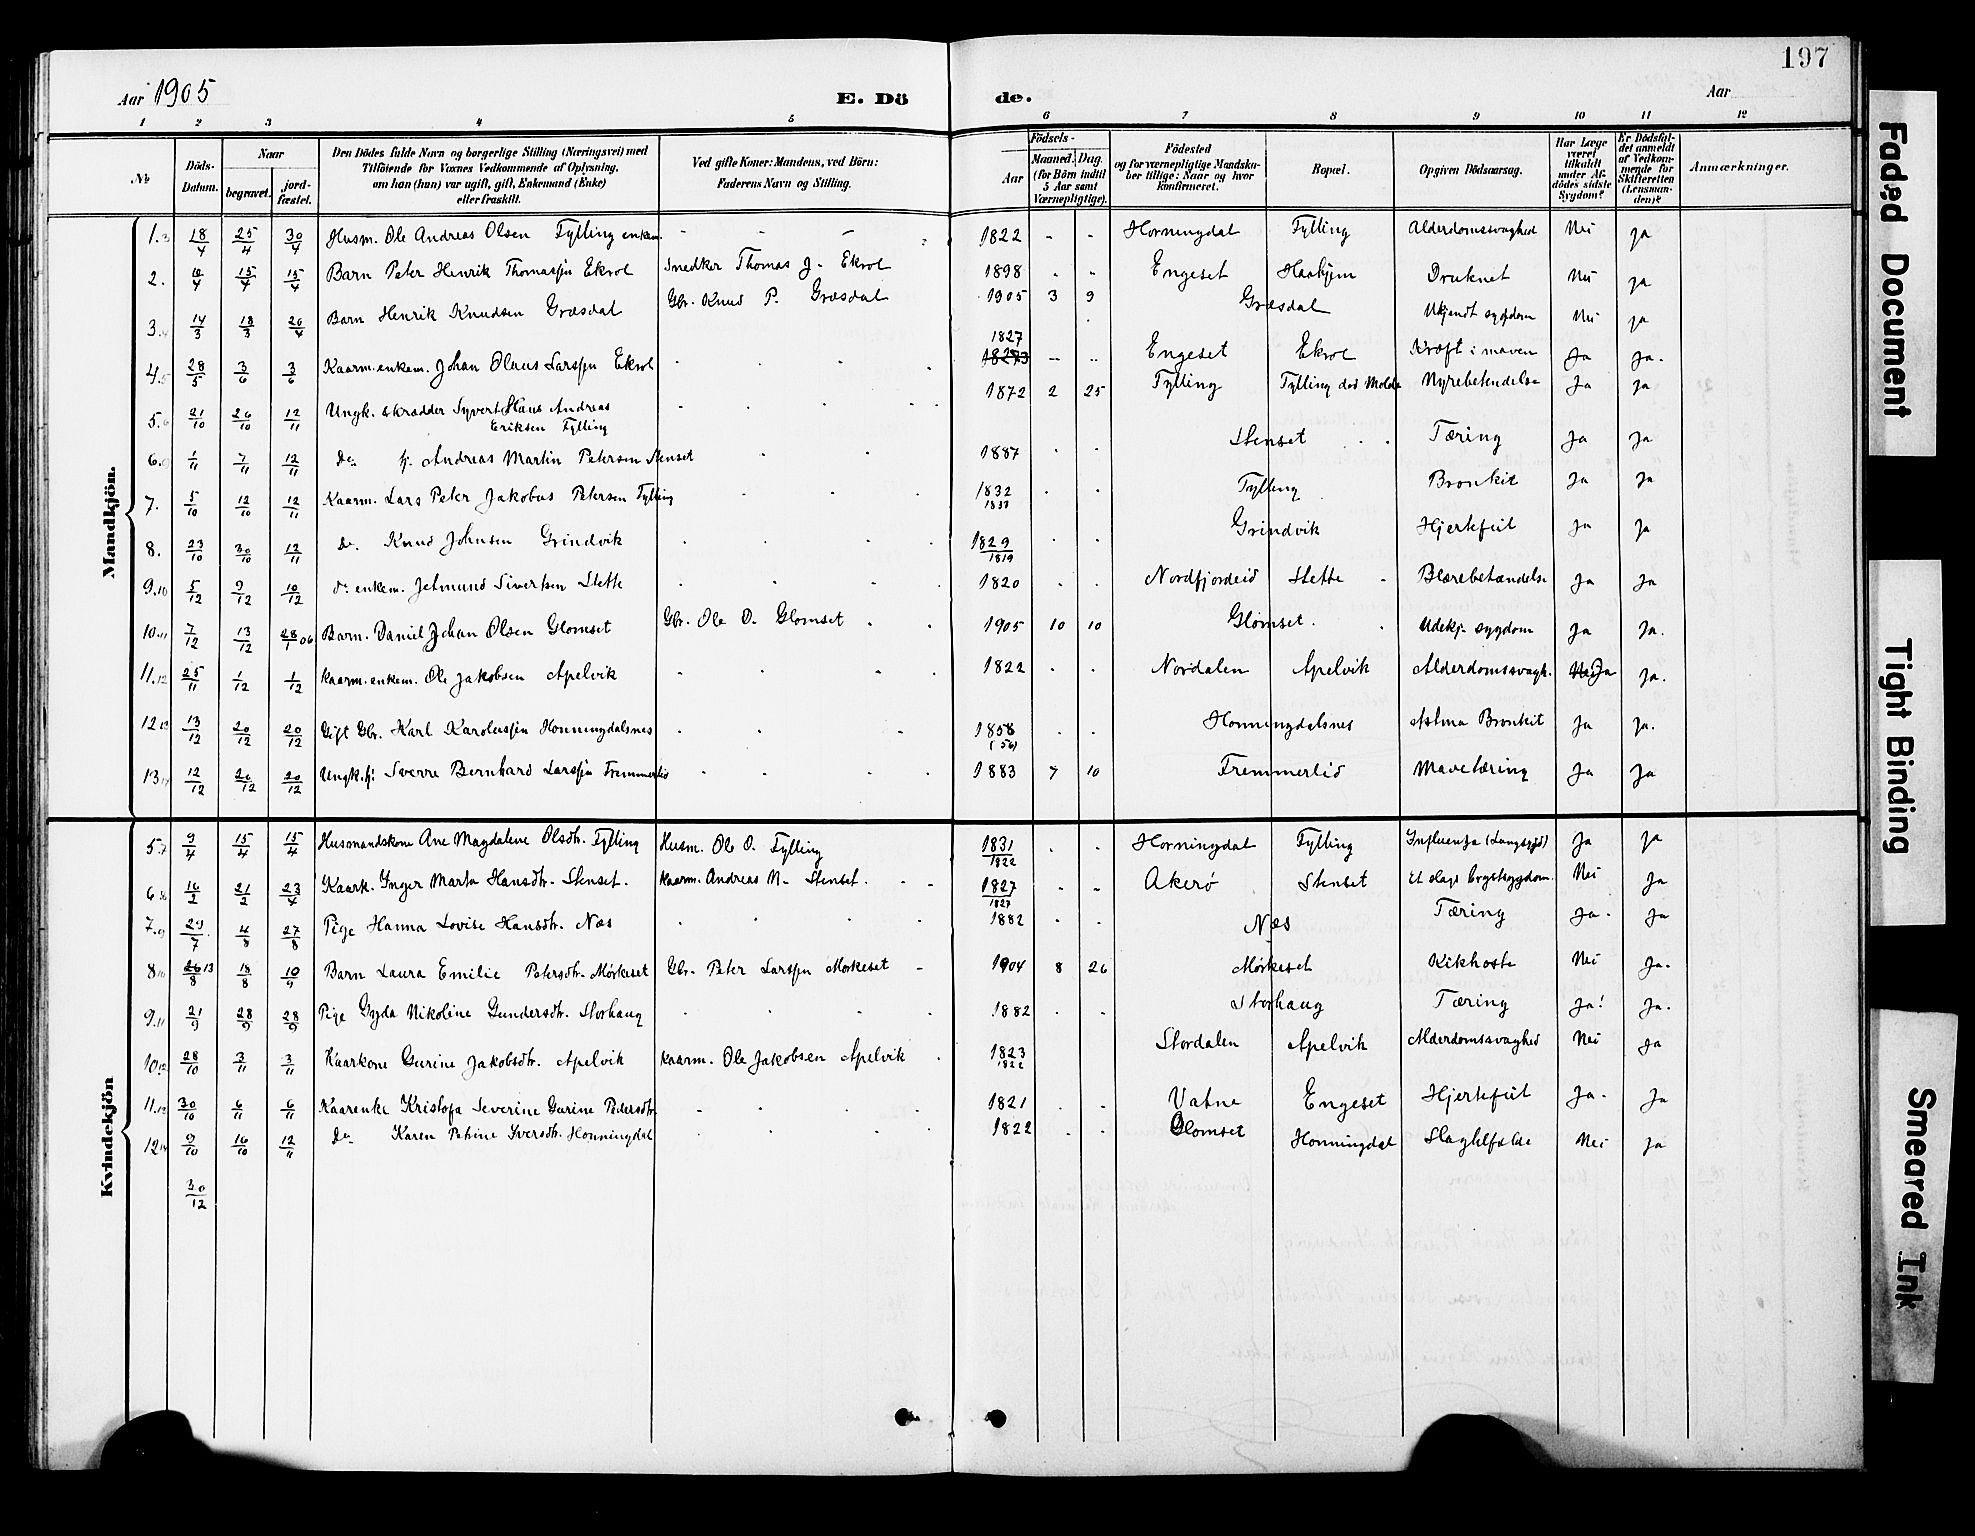 197
Aar 1905 E. Dö de. Aar
1 2 3 4 5 6 7 8 9 10 11 12
№ Döds-Datum. Naar begravet. jord-fæstet. Den Dödes fulde Navn og borgerlige Stilling (Næringsvei) med Tilföiende for Voxnes Vedkommende af Oplysning, om han (hun) var ugift, gift, Enkemand (Enke) eller fraskilt. Ved gifte Koner: Mandens, ved Börn: Faderens Navn og Stilling. Födsels- Aar Maaned. Dag. (for Börn indtil 5 Aar samt Værnepligtige). Födested og for værnepligtige Mandskaber tillige: Naar og hvor konfirmeret. Bopæl. Opgiven Dödsaarsag. Har Læge været tilkaldt under Afdödes sidste Sygdom? Er Dödsfaldet anmeldt af Vedkommende for Skifteretten (Lensmanden)? Anmærkninger.
Mandkjön.
1. 3 18/4 25/4 30/4 Husm. Ole Andreas Olsen Fylling enkem. - - - 1822 - - Horningdal Fylling Alderdomssvaghed Nei ja
2. 15/4 15/4 Barn Peter Henrik Thomassjn Ekrol Snedker Thomas J. Ekrol 1898 Engeset Haahjem Druknet Nei ja
3. 14/3 18/3 Barn Henrik Knudsen Græsdal Gbr. Knud P. Græsdal 1905 3 9 Græsdal Ukjendt sygdom Nei ja
4. 5 28/5 3/6 3/6 Kaarm. enkem. Johan Olaus Larssjn Ekrol 1827 Engeset Ekrol Kræft i maven Ja Ja.
5. 6 21/10 26/10 12/11 Ungk. skrædder Syvert Hans Andreas Eriksen Fylling 1872 2 25 Fylling Fylling død Molde Nyrebetendelse Ja ja
6. 1/11 7/11 12/11 Do. Andreas Martin Petersen Stenset 1887 Stenset Tæring Ja Ja
7. 5/10 12/10 12/11 Kaarm. Lars Peter Jakobus Petersen Fylling 1832 Fylling Bronkit Ja Ja
8. 23/10 30/10 12/11 Do. Knud Johnsen Grindvik 1829 1819 Grindvik Hjertefeil Ja Ja
9. 10 5/12 9/12 10/12 do. enkem. Jetmund Sivertsen Slette 1820 Nordfjordeid Slette Blærebetændelse Ja Ja
10. 11 7/12 13/12 28/1 06 Barn. Daniel Johan Olsen Glomset Gbr. Ole O. Glomset 1905 10 10 Glomset. Udekj. sygdom Ja Ja.
11. 12 25/11 1/12 1/12 Kaarm. enkem. Ole Jakobsen Apelvik 1822 Nordalen Apelvik Alderdomssvagh. Nei Ja Ja.
12 13 13/12 20/12 20/12 Gift Gbr. Karl Karolussjn Honningdalsnes 1858 (56) Honningdalsnes Astma Bronkit Ja Ja.
13 12/12 20/12 20/12 Ungk. fj. Sverre Bernhard Larssjn Fremmerlid 1883 7 10 Fremmerlid Mavetæring Ja Ja
Kvindekjön
5. 7 9/4 15/4 15/4 Husmandskone Ane Magdalene Olsdtr. Fylling Husm. Ole O. Fylling 1831 1822 Horningdal Fylling Influenza (Langsygd) Ja Ja
6 16/2 21/2 23/4 Kaark. Inger Marta Hansdtr. Stenset. Kaarm. Andreas N. Stenset. 1827 1827 Akerø Stenset Et slags brystsygdom. Nei Ja
7. 9 29/7 4/8 27/8 Pige Hanna Lovise Hansdtr. Næs 1882 Næs Tæring Ja. Ja
8 10 26/8 13 18/8 10/9 Barn Laura Emilie Petersdtr. Mørkeset Gbr. Peter Larssjn Mørkeset 1904 8 26 Mørkeset Kikhoste Nei Ja.
9. 11 21/9 28/9 28/9 Pige Gyda Nikoline Gundersdtr. Storhaug 1882 Storhaug Tæring Ja! Ja.
10. 12 28/10 3/11 3/11 Kaarkone Gurine Jakobsdtr. Apelvik Kaarm. Ole Jakobsen Apelvik 1823 1822 Stordalen Apelvik Alderdomssvaghed Nei Ja
11. 13 30/10 6/11 6/11 Kaarenke Kristofa Severine Gurine Pedersdtr. 1821 Vatne Engeset Hjertefeil Ja. Ja
12 14 9/10 16/10 12/11 Do. Karen Petrine Iversdtr. Honningdal 1822 Glomset Honningdal Slagtilfælde Nei Ja
30/12
Faded Document
Tight Binding
Smeared Ink